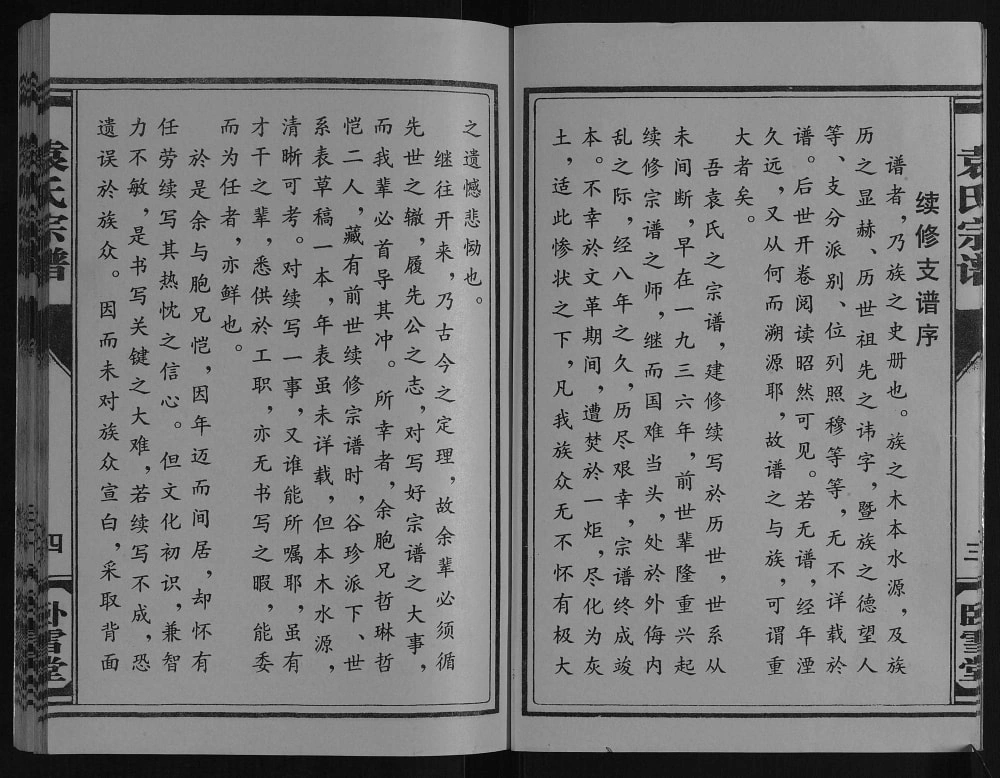 袁氏宗谱
三
卧雪堂
续修支谱序
谱者，乃族之史册也。族之木本水源，及族
历之显赫、历世祖先之讳字，暨族之德望人
等、支分派别、位列照穆等等，无不详载於
谱。后世开卷阅读昭然可见。若无谱，经年湮
久远，又从何而溯源耶，故谱之与族，可谓重
大者矣。
吾袁氏之宗谱，建修续写於历世，世系从
未间断，早在一九三六年，前世辈隆重兴起
续修宗谱之师，继而国难当头，处於外侮内
乱之际，经八年之久，历尽艰幸，宗谱终成竣
本。不幸於文革期间，遭焚於一炬，尽化为灰
土，适此惨状之下，凡我族众无不怀有极大
之遗憾悲恸也。
继往开来，乃古今之定理，故余辈必须循
先世之辙，履先公之志，对写好宗谱之大事，
而我辈必首导其冲。所幸者，余胞兄哲琳哲
恺二人，藏有前世续修宗谱时，谷珍派下、世
系表草稿一本，年表虽未详载，但本木水源，
清晰可考。对续写一事，又谁能所嘱耶，虽有
才干之辈，悉供於工职，亦无书写之暇，能委
而为任者，亦鲜也。
於是余与胞兄恺，因年迈而间居，却怀有
任劳续写其热忱之信心。但文化初识，兼智
力不敏，是书写关键之大难，若续写不成，恐
遗误於族众。因而未对族众宣白，采取背面
袁氏宗谱
四
卧雪堂